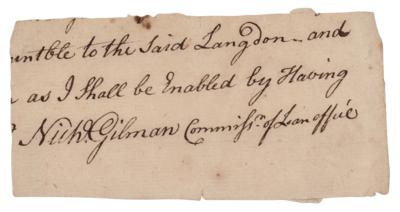 untble to the Said Langdon and
as I Shall be Enabled by Having
Nichs. Gilman Commissr. of Loan office